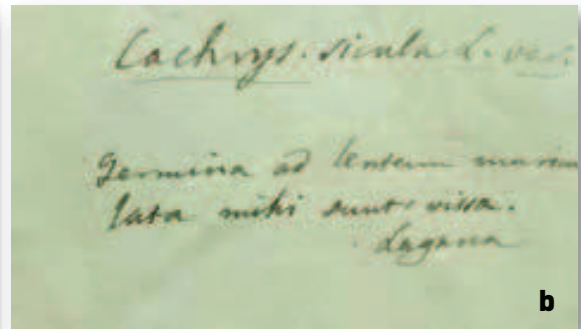 Cachrys. sicula L. var.
Germina ad lentem
lata mihi sunt visa.
Lagasca
b